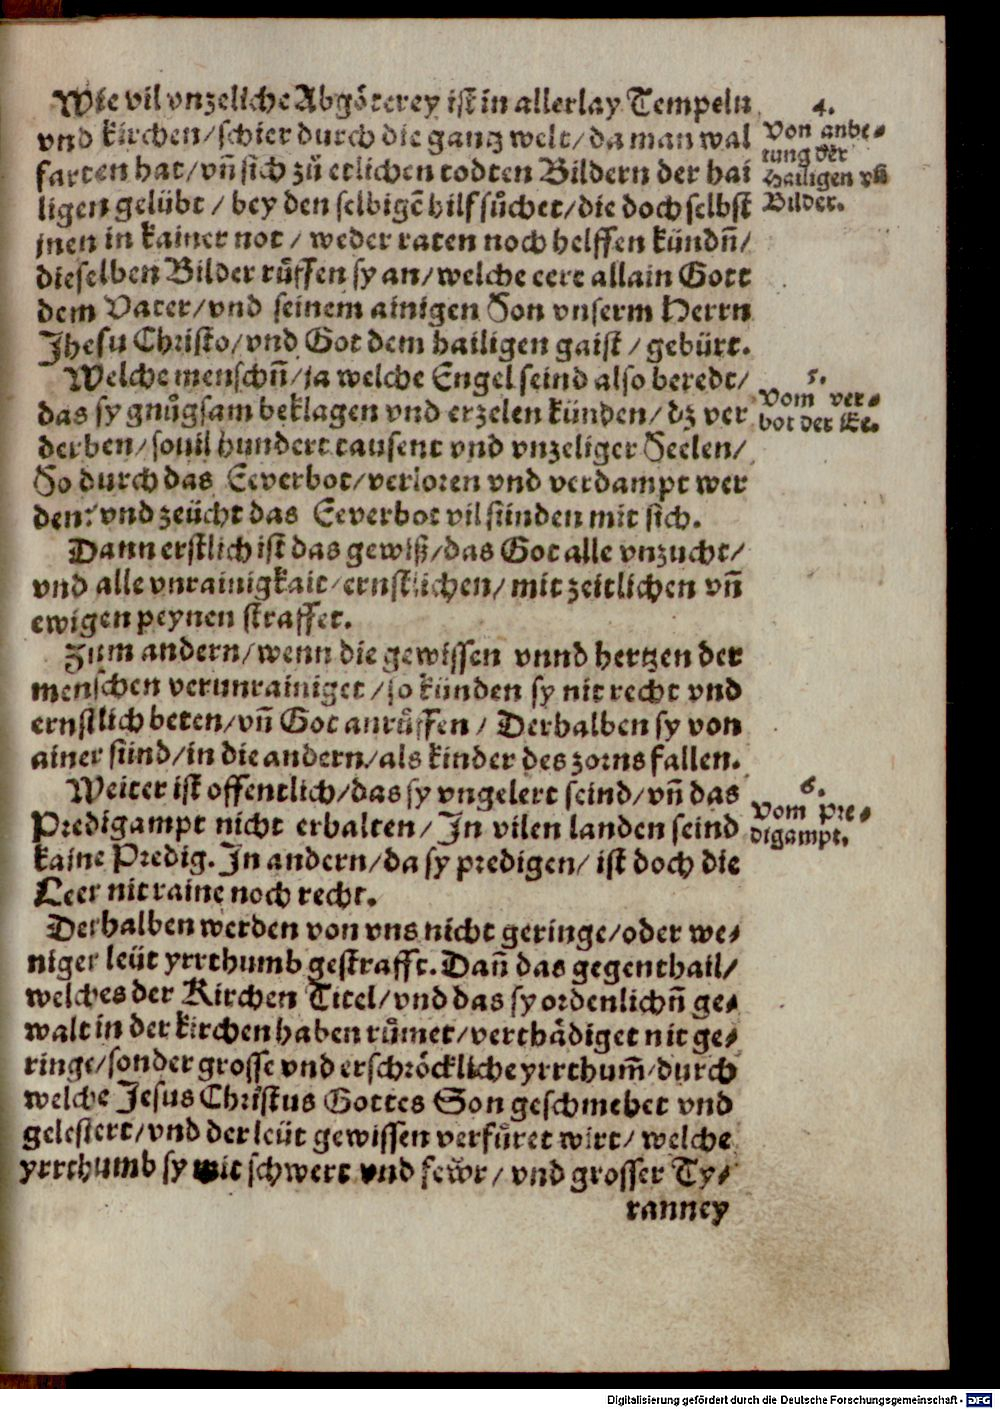 Wie vil vnzeliche Abgötterey ist in allerlay Tempeln
vnd kirchen/schier durch die gantz welt/da man wal
farten hat/vñ sich zů etlichen todten Bildern der hai
ligen gelübt/bey den selbigē hilf sůchet/die doch selbst
jnen in kainer not/weder raten noch helffen kündñ/
dieselben Bilder růffen sy an/welche eere allain Gott
dem Vater/vnd seinem ainigen Son vnserm Herrn
Jhesu Christo/vnd Got dem hailigen gaist/gebürt.
4.
Von anbe⸗
tung der
Hailigen vñ
Bilder.
Welche menschñ/ja welche Engel seind also beredt/
das sy gnůgsam beklagen vnd erzelen künden/dz ver
derben/souil hundert tausent vnd vnzeliger Seelen/
So durch das Eeverbot/verloren vnd verdampt wer
den: vnd zeücht das Eeverbot vil sünden mit sich.
5.
Vom ver⸗
bot der Ee.
Dann erstlich ist das gewiß/das Got alle vnzucht/
vnd alle vnrainigkait/ernstlichen/mit zeitlichen vñ
ewigen peynen straffet.
Zum andern/wenn die gewissen vnnd hertzen der
menschen verunrainiget/so künden sy nit recht vnd
ernstlich beten/vñ Got anrůffen/Derhalben sy von
ainer sünd/in die andern/als kinder des zorns fallen.
Weiter ist offentlich/das sy vngelert seind/vñ das
Predigampt nicht erhalten/In vilen landen seind
kaine Predig. In andern/da sy predigen/ist doch die
Leer nit raine noch recht.
6.
Vom Pre⸗
digampt.
Derhalben werden von vns nicht geringe/oder we⸗
niger leüt yrrthumb gestrafft. Dañ das gegenthail/
welches der Kirchen Titel/vnd das sy ordenlichñ ge⸗
walt in der kirchen haben růmet/verthädiget nit ge⸗
ringe/sonder grosse vnd erschröckliche yrrthum̃/durch
welche Jesus Christus Gottes Son geschmehet vnd
gelestert/vnd der leüt gewissen verfůret wirt/welche
yrrthumb sy mit schwert vnd feẘr/vnd grosser Ty⸗
ranney
Digitalisierung gefördert durch die Deutsche Forschungsgemeinschaft - DFG